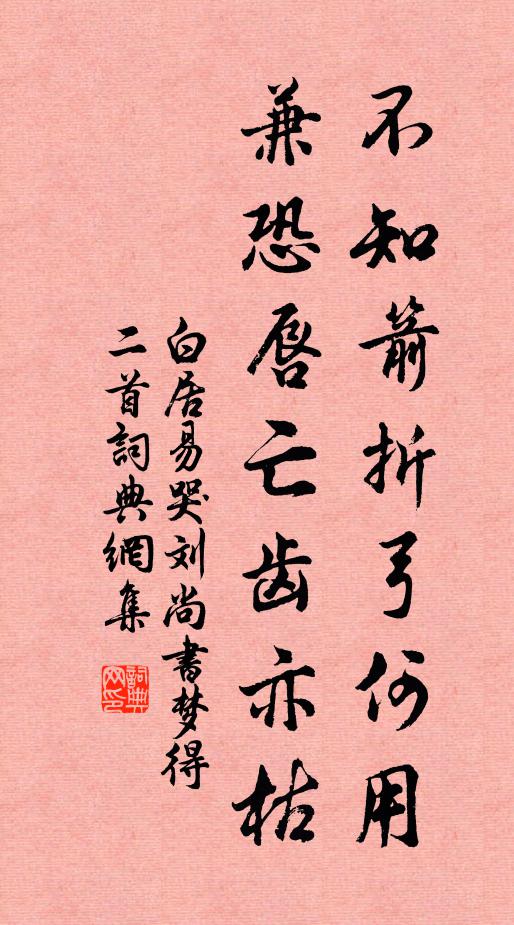 不知箭折弓何用
兼恐唇亡齿亦枯
白居易哭刘尚書梦得
二首詞典網集
詞典
网印